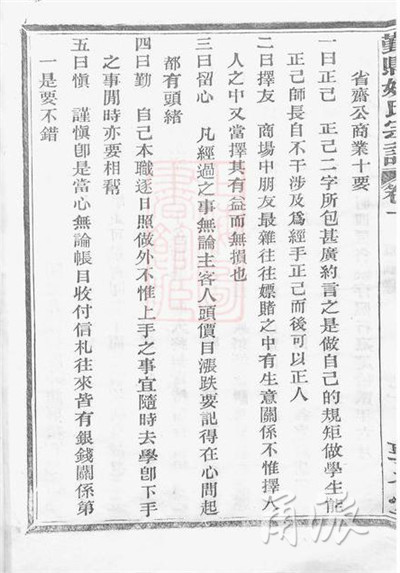 鄞縣姚氏宗譜卷一
省齋公商業十要
一曰正己　正己二字所包甚廣約言之是做自己的規矩做學生能
正己師長自不干涉及爲經手正己而後可以正人
二曰擇友　商場中朋友最雜往往嫖賭之中有生意關係不惟擇人
人之中又當擇其有益而無損也
三曰留心　凡經過之事無論主客人頭價目漲跌要記得在心問起
都有頭緒
四曰勤　自己本職逐日照做外不惟上手之事宜隨時去學卽下手
之事閒時亦要相幫
五曰愼　謹愼卽是當心無論帳目收付信札往來皆有銀錢關係第
一是要不錯
甬派